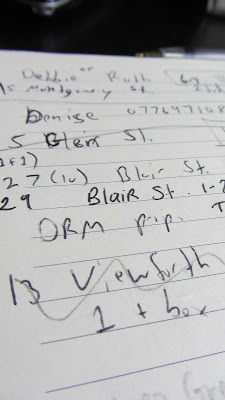 Debbie or Ruth
Montgomery St.
Denise 077697108
5 Glen St.
(1F1)
27 (1L) Blair St.
29 Blair St. 1-2
DRM p.p.
13 Viewforth
1 + box